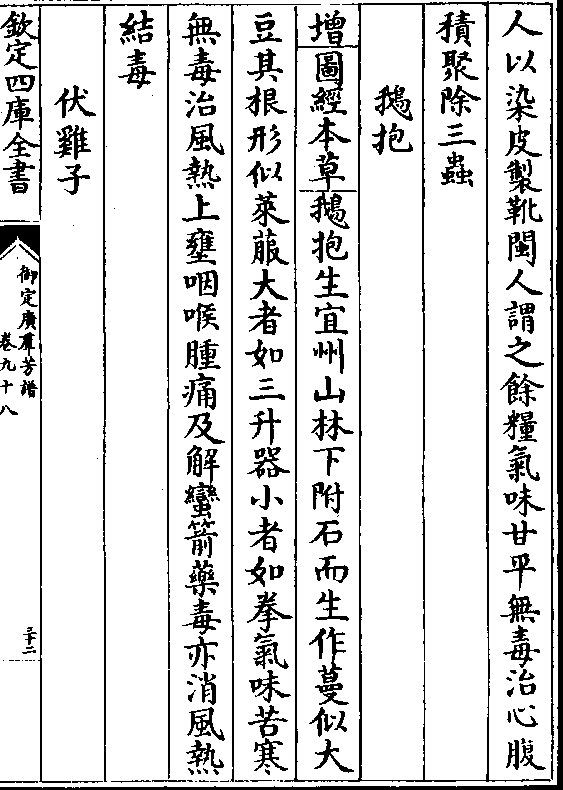 人以染皮製靴閩人謂之餘糧氣味甘平無毒治心腹
積聚除三蟲
鵝抱
增圖經本草鵝抱生宜州山林下附石而生作蔓似大
豆其根形似萊菔大者如三升器小者如拳氣味苦寒
無毒治風熱上壅咽喉腫痛及解蠻箭藥毒亦消風熱
結毒
伏雞子
欽定四庫全書
御定廣群芳譜
卷九十八
三十二